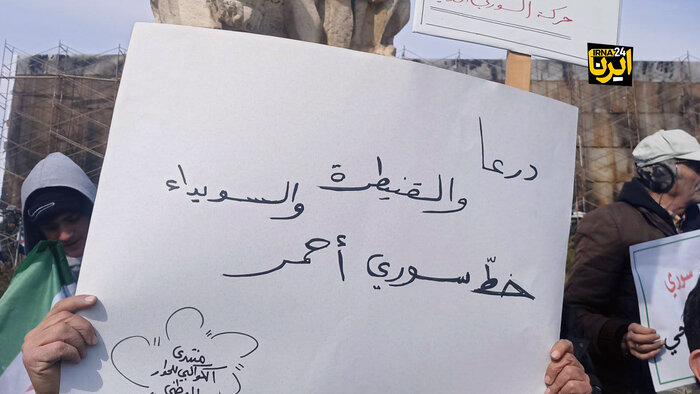 حركة السوري
IRNA24
ایرنا
درعا
والقنيطرة والسويداء
خطّ سوري أحمر
منتدى
الكواكبي للحوار
الوطني
سوري